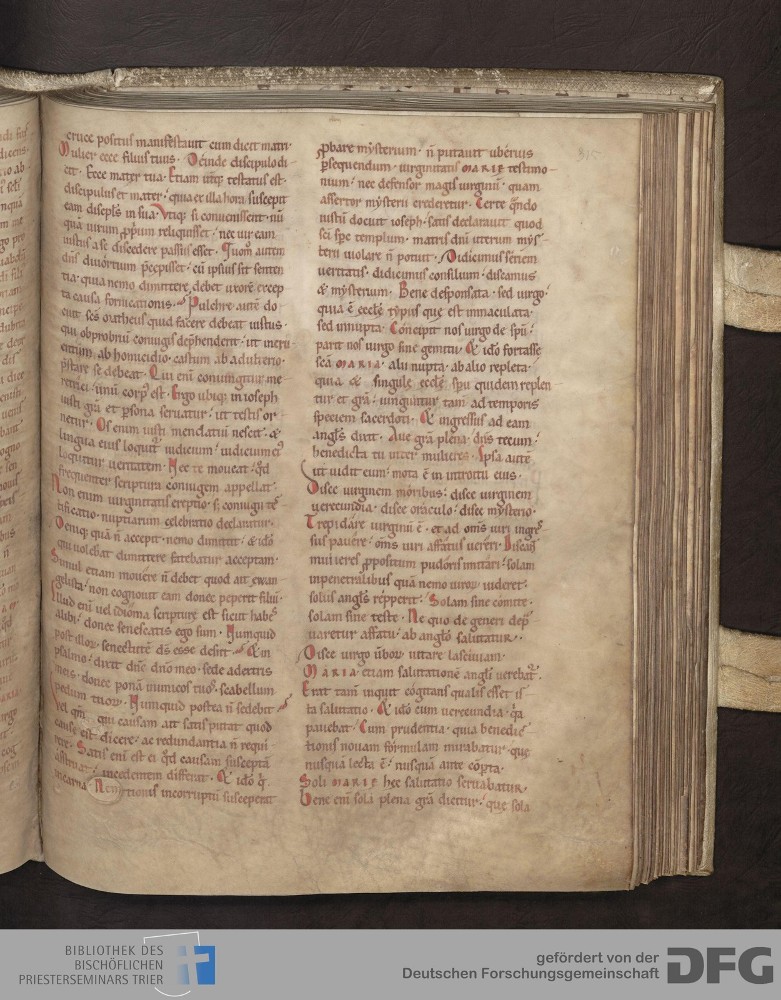 cruce positus manifestauit cum dicit matri·
Mulier ecce filius tuus· Deinde discipulo di
cit· Ecce mater tua· Etiam utq; testatus est·
discipulus et mater· quia ex illa hora suscepit
eam discipls in sua· Vtiq; si conuenissent· nū
quā uirum ꝓpum reliquisset· nec uir eam
iustus a se discedere passus esset· Quom autem
dn̄s diuortium p̄cepisset· cū ipsius sit senten
tia· quia nemo dimittere debet uxorē excep
ta causa fornicationis· Pulchre autē do
cuit scs matheus quid facere debeat iustus·
qui obprobriū coniugis dep̄henderit· ut incru
entum ab homicidio· castum ab adulterio·
p̄stare se debeat· Qui enī coniungitur me
retrici· unū corp' est· Ergo ubiq; in ioseph
iusti grā et psona seruatur· ut testis or
netur· Os enim iusti mendatiū nescit· &
lingua eius loquit' iudicium· iudiciū ei'
loquitur ueritatem· Nec te moueat· qd
frequenter scriptura coniugem appellat·
Non enim uirginitatis ereptio· sꝫ coniugii tes
tificatio· nuptiarum celebratio declaratur·
Deniq; quā n̄ accepit· nemo dimittit· & idō
qui uolebat dimittere fatebatur acceptam·
Simul etiam mouere n̄ debet quod ait ewan
gelista· non cognouit eam donec peperit filiū·
Illud enī uel idioma scripturę est sicut habes
alibi· donec senescatis ego sum· Numquid
post illoꝝ senectutē dꝭ esse desiit· & in
psalmo· dixit dn̄s dn̄o meo· sede a dextris
meis· donec ponā inimicos tuos· scabellum
pedum tuoꝝ· Numquid postea n̄ sedebit·
Vel qm̄ qui causam ait satis putat quod
causę est dicere· ac redundantia n̄ requi
rere· Satis enī est ei qd causam susceptā
astruat· incedentem differat· & idō q
incarna
Nen tionis incorruptū susceperat
ꝓbare mysterium· n̄ putauit uberius
ꝓsequendum· uirginitatis MARIĘ testimo
nium· nec defensor magis uirginū· quam
assertor mysterii crederetur· Certe qn̄do
iustū docuit ioseph· satis declarauit quod
sci spc templum· matris dn̄i uterum mys
terii uiolare n̄ potuit· Didicimus seriem
ueritatis· didicimus consilium· discamus
& mysterium· Bene desponsata· sed uirgo·
quia ē ecclē typus quę est immaculata·
sed innupta· Concepit nos uirgo de spū·
parit nos uirgo sine gemitu· & idō fortasse
scā MARIA· alii nupta· ab alio repleta·
quia & singulę ecclę spu quidem replen
tur et grā· iunguntur tam̄ ad temporis
speciem sacerdoti· & ingressus ad eam
angls dixit· Aue grā plena dn̄s tecum·
benedicta tu inter mulieres· Ipsa autē
ut uidit eum· mota ē in introitu eius·
Disce uirginem moribus· disce uirginem
uerecundia· disce oraculo· disce mysterio·
Trepidare uirginū ē· et ad oms uiri ingres
sus pauere· oms uiri affatus uereri· Discant
mulieres ꝓpositum pudoris imitari· solam
in penetralibus quā nemo uiroꝝ uideret·
solus angls repperit· Solam sine comite·
solam sine teste· Ne quo degeneri dep
uaretur affatu· ab anglo salutatur·
Disce uirgo uboꝝ uitare lasciuiam·
MARIA etiam salutationē angli uerebat'·
Erat tam̄ inquit cogitans qualis esset is
ta salutatio· & idō cum uerecundia· qa
pauebat· Cum prudentia· quia benedic
tionis nouam formulam mirabatur· quę
nusquā lecta ē· nusquā ante cōpta·
Soli MARIĘ hec salutatio seruabatur·
Bene enī sola plena grā dicitur· que sola
315
BIBLIOTHEK DES
BISCHÖFLICHEN
PRIESTERSEMINARS TRIER
gefördert von der
Deutschen Forschungsgemeinschaft
DFG